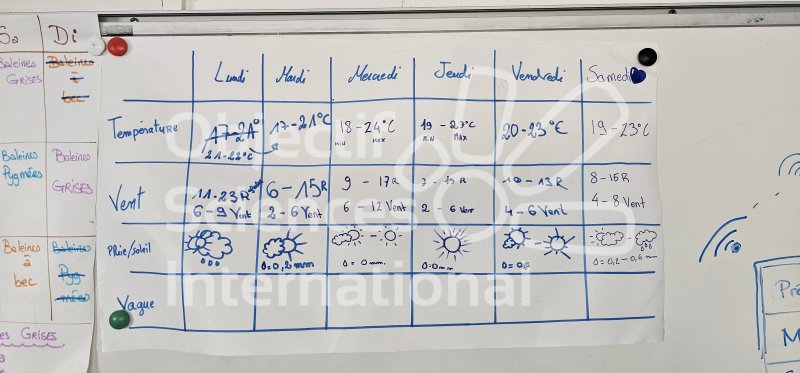 Sa Di
Baleines
GRISES
Baleines
à
bec
Baleines
Pygmées
Baleines
GRISES
Baleines
à
bec
Baleines
Pyg
mées
es GRISES
Lundi Mardi Mercredi Jeudi Vendredi Samedi
Température 17-21° 17-21°C 18-24°C 19-23°C 20-23°C 19-23°C
21-22°C MIN MAX MIN MAX
Vent 11-23R 6-15R 9-17R 10-13R 8-15R
6-9 Vent 2-6 Vent 6-12 Vent 2-6 Vent 4-6 Vent 4-8 Vent
Pluie/Soleil
0=0,2mm 0=0mm 0=0mm 0=0,2-0,6mm
Vague
Objectif
Sciences
International
Pré
M